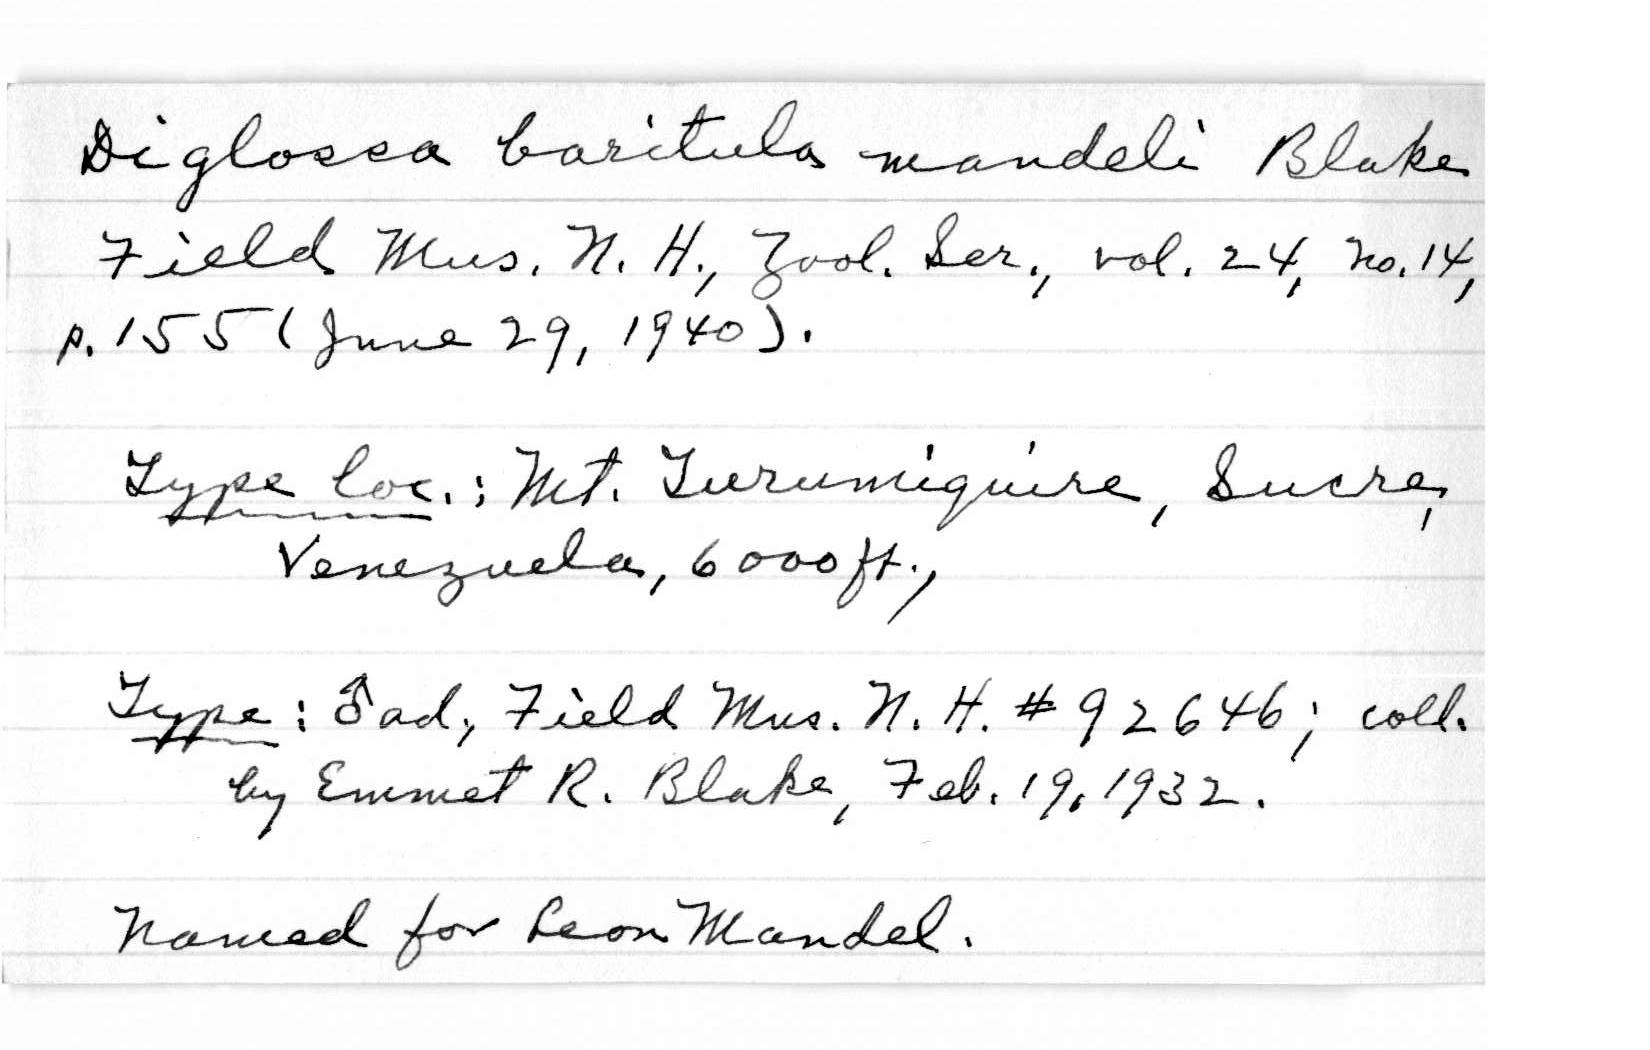 Diglossa baritula mandeli Blake
Field Mus. N. H., Zool. Ser., vol. 24, no. 14,
p. 155 (June 29, 1940).
Type loc.: Mt. Turumiquire, Sucre,
Venezuela, 6000 ft.,
Type: ♂ ad., Field Mus. N. H. # 92646; coll.
by Emmet R. Blake, Feb. 19, 1932.
Named for Leon Mandel.